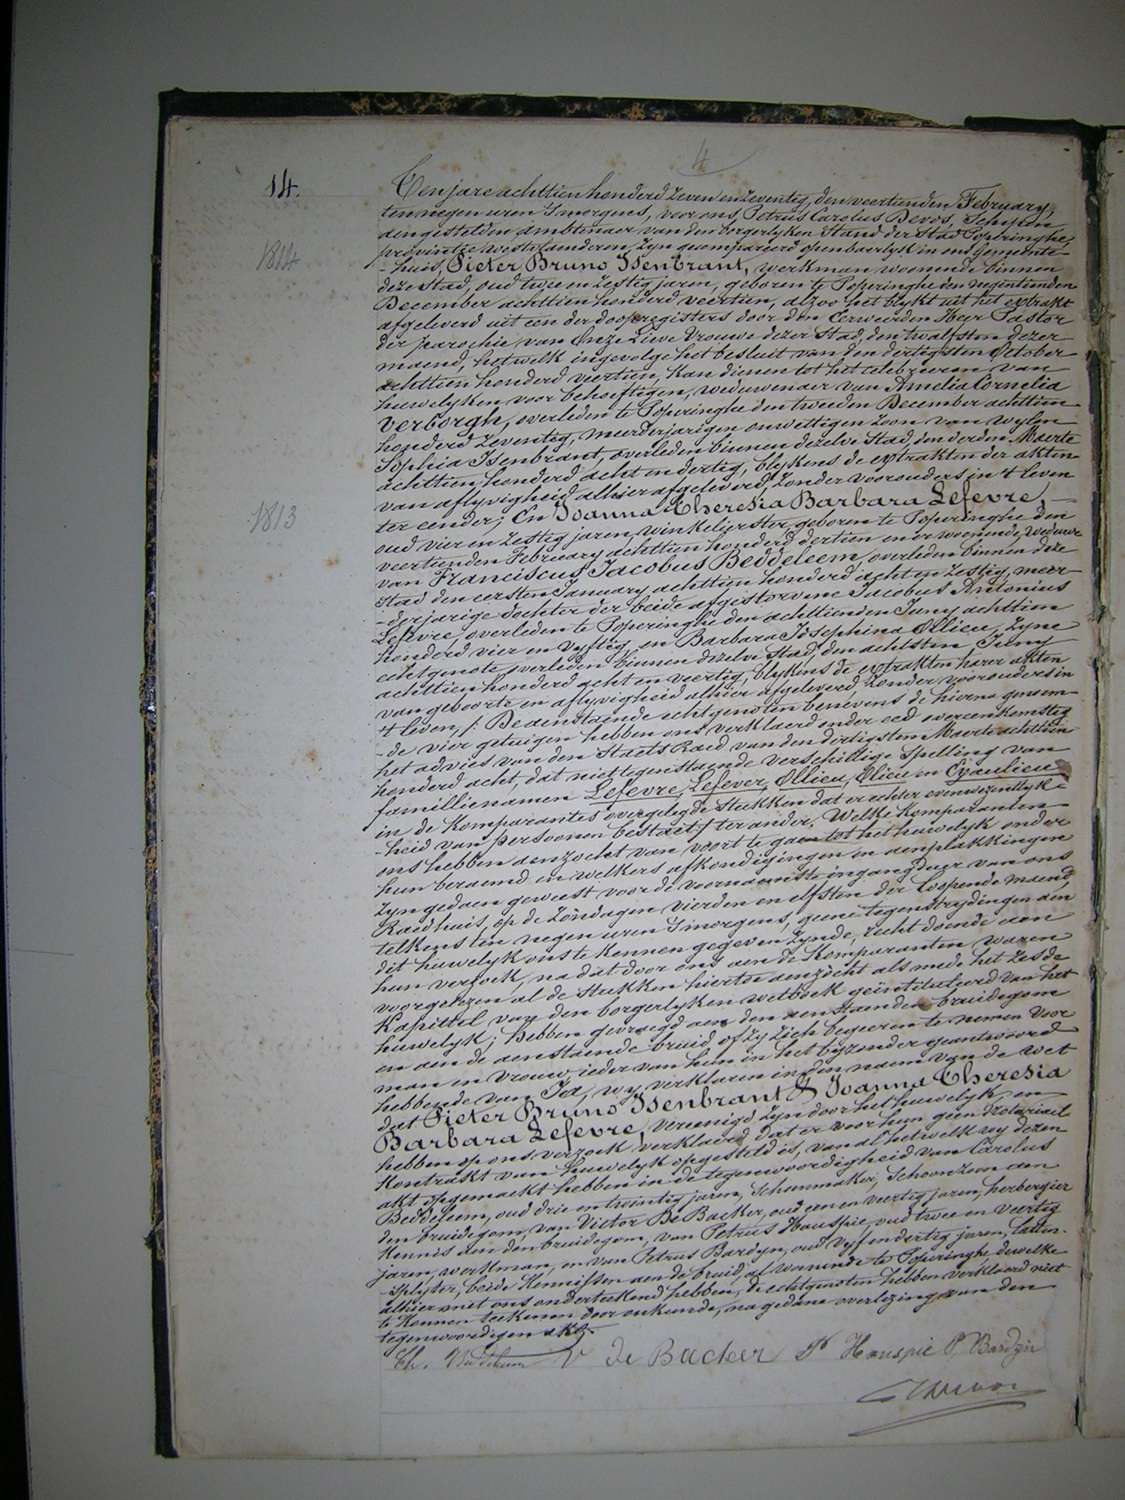 4
14.
Ten jare achttien honderd zeven en zeventig, den veertienden February,
ten negen uren 's morgens, voor ons, Petrus Carolus Devos, Schepen
aengestelden ambtenaer van den borgerlyken Stand der Stad Poperinghe,
provintie Westvlaenderen, zyn gecompareerd openbaerlyk in ons Gemeente-
1814
-huis, Pieter Bruno Isenbrant, werkman woonende binnen
deze stad, oud twee en zestig jaren, geboren te Poperinghe den negentienden
December achttien honderd veertien, alzoo het blykt uit het extrakt
afgeleverd uit een der doopregisters door den Eerweerden Heer Pastor
der parochie van Onze Lieve Vrouwe dezer Stad, den twalfsten dezer
maend, hetwelk ingevolge het besluit van den dertigsten October
achttien honderd veertien, kan dienen tot het celebreren van
huwelyken voor behoeftigen, weduwenaer van Amelia Cornelia
Verborgh, overleden te Poperinghe den tweeden December achttien
honderd zeventig, meerderjarigen onwettigen zoon van wylen
Sophia Isenbrant, overleden binnen dezelve Stad, den derden Maerte
achttien honderd acht en dertig, blykens de extrakten der akten
van aflyvigheid alhier afgeleverd, zonder voorouders in 't leven
ter eender; En Joanna Theresia Barbara Lefevre,
1813
oud vier en zestig jaren, winkelierster, geboren te Poperinghe den
veertienden February achttien honderd dertien en er woonende, weduwe
van Franciscus Jacobus Beddeleem, overleden binnen deze
Stad den eersten January achttien honderd acht en zestig, meer-
-derjarige dochter der beide afgestorvene Jacobus Antonius
Lefevre, overleden te Poperinghe den achttienden Juny achttien
honderd vier en vyftig, en Barbara Josephina Ollieu, zyne
echtgenote, overleden binnen dezelve Stad, den achtsten Juny
achttien honderd acht en veertig, blykens de extrakten harer akten
van geboorte en aflyvigheid alhier afgeleverd, zonder voorouders in
't leven, /. De aenstaende echtgenoten benevens de hierna genoem-
-de vier getuigen hebben ons verklaerd onder eed overeenkomstig
het advies van den Staets Raed van den dertigsten Maerte achttien
honderd acht, dat niettegenstaende verschillige spelling van
famillienamen Lefevre, Lefever, Ollieu, Olieu en
in de Komparantes overgelegde stukken dat er echter evenwezentlyk-
-heid van persoonen bestaet / ter ander. Welke Komparanten
ons hebben aenzocht van voort te gaen tot het huwelyk onder
hun beraemd en welkers afkondigingen en aenplakkingen
zyn gedaen geweest voor de voornaemste ingangdeur van ons
Raedhuis, op de Zondagen vierden en elfsten der loopende maend,
telkens ten negen uren 's morgens, geene tegenstrydingen aen
dit huwelyk ons te kennen gegeven zynde, recht doende aen
hun verzoek, na dat door ons aen de Komparanten waren
voorgelezen al de Stukken hiertoe aenzocht als mede het zesde
Kapittel van den borgerlyken wetboek geïntituleerd van het
huwelyk; hebben gevraegd aen den aenstaenden bruidegom
en aen de aenstaende bruid of zy zich begeeren te nemen voor
man en vrouw, ieder van hun in het byzonder geantwoord
hebbende van Ja, wy verklaren in den naem van de wet
dat Pieter Bruno Isenbrant & Joanna Theresia
Barbara Lefevre, vereenigd zyn door het huwelyk, en
hebben op ons verzoek verklaerd dat er voor hun geen Notariael
Kontrakt van huwelyk opgesteld is, van al hetwelk wy dezen
akt opgemaekt hebben in de tegenwoordigheid van Carolus
Beddeleem, oud drie en twintig jaren, Schoenmaker, Schoonzoon aen
den bruidegom, van Victor De Backer, oud een en veertig jaren, herbergier
Kennis aen den bruidegom, van Petrus Hauspie, oud twee en veertig
jaren, werkman, en van Petrus Bardyn, oud vyf en dertig jaren, latten-
-splyter, beide Kennissen aen de bruid, al woonende te Poperinghe, dewelke
alhier met ons onderteekend hebben, de echtgenoten hebben verklaerd niet
te Konnen teekenen door onkunde, na gedane overlezing van den
tegenwoordigen akt.
V De Backer P Hauspie P, Bardyn